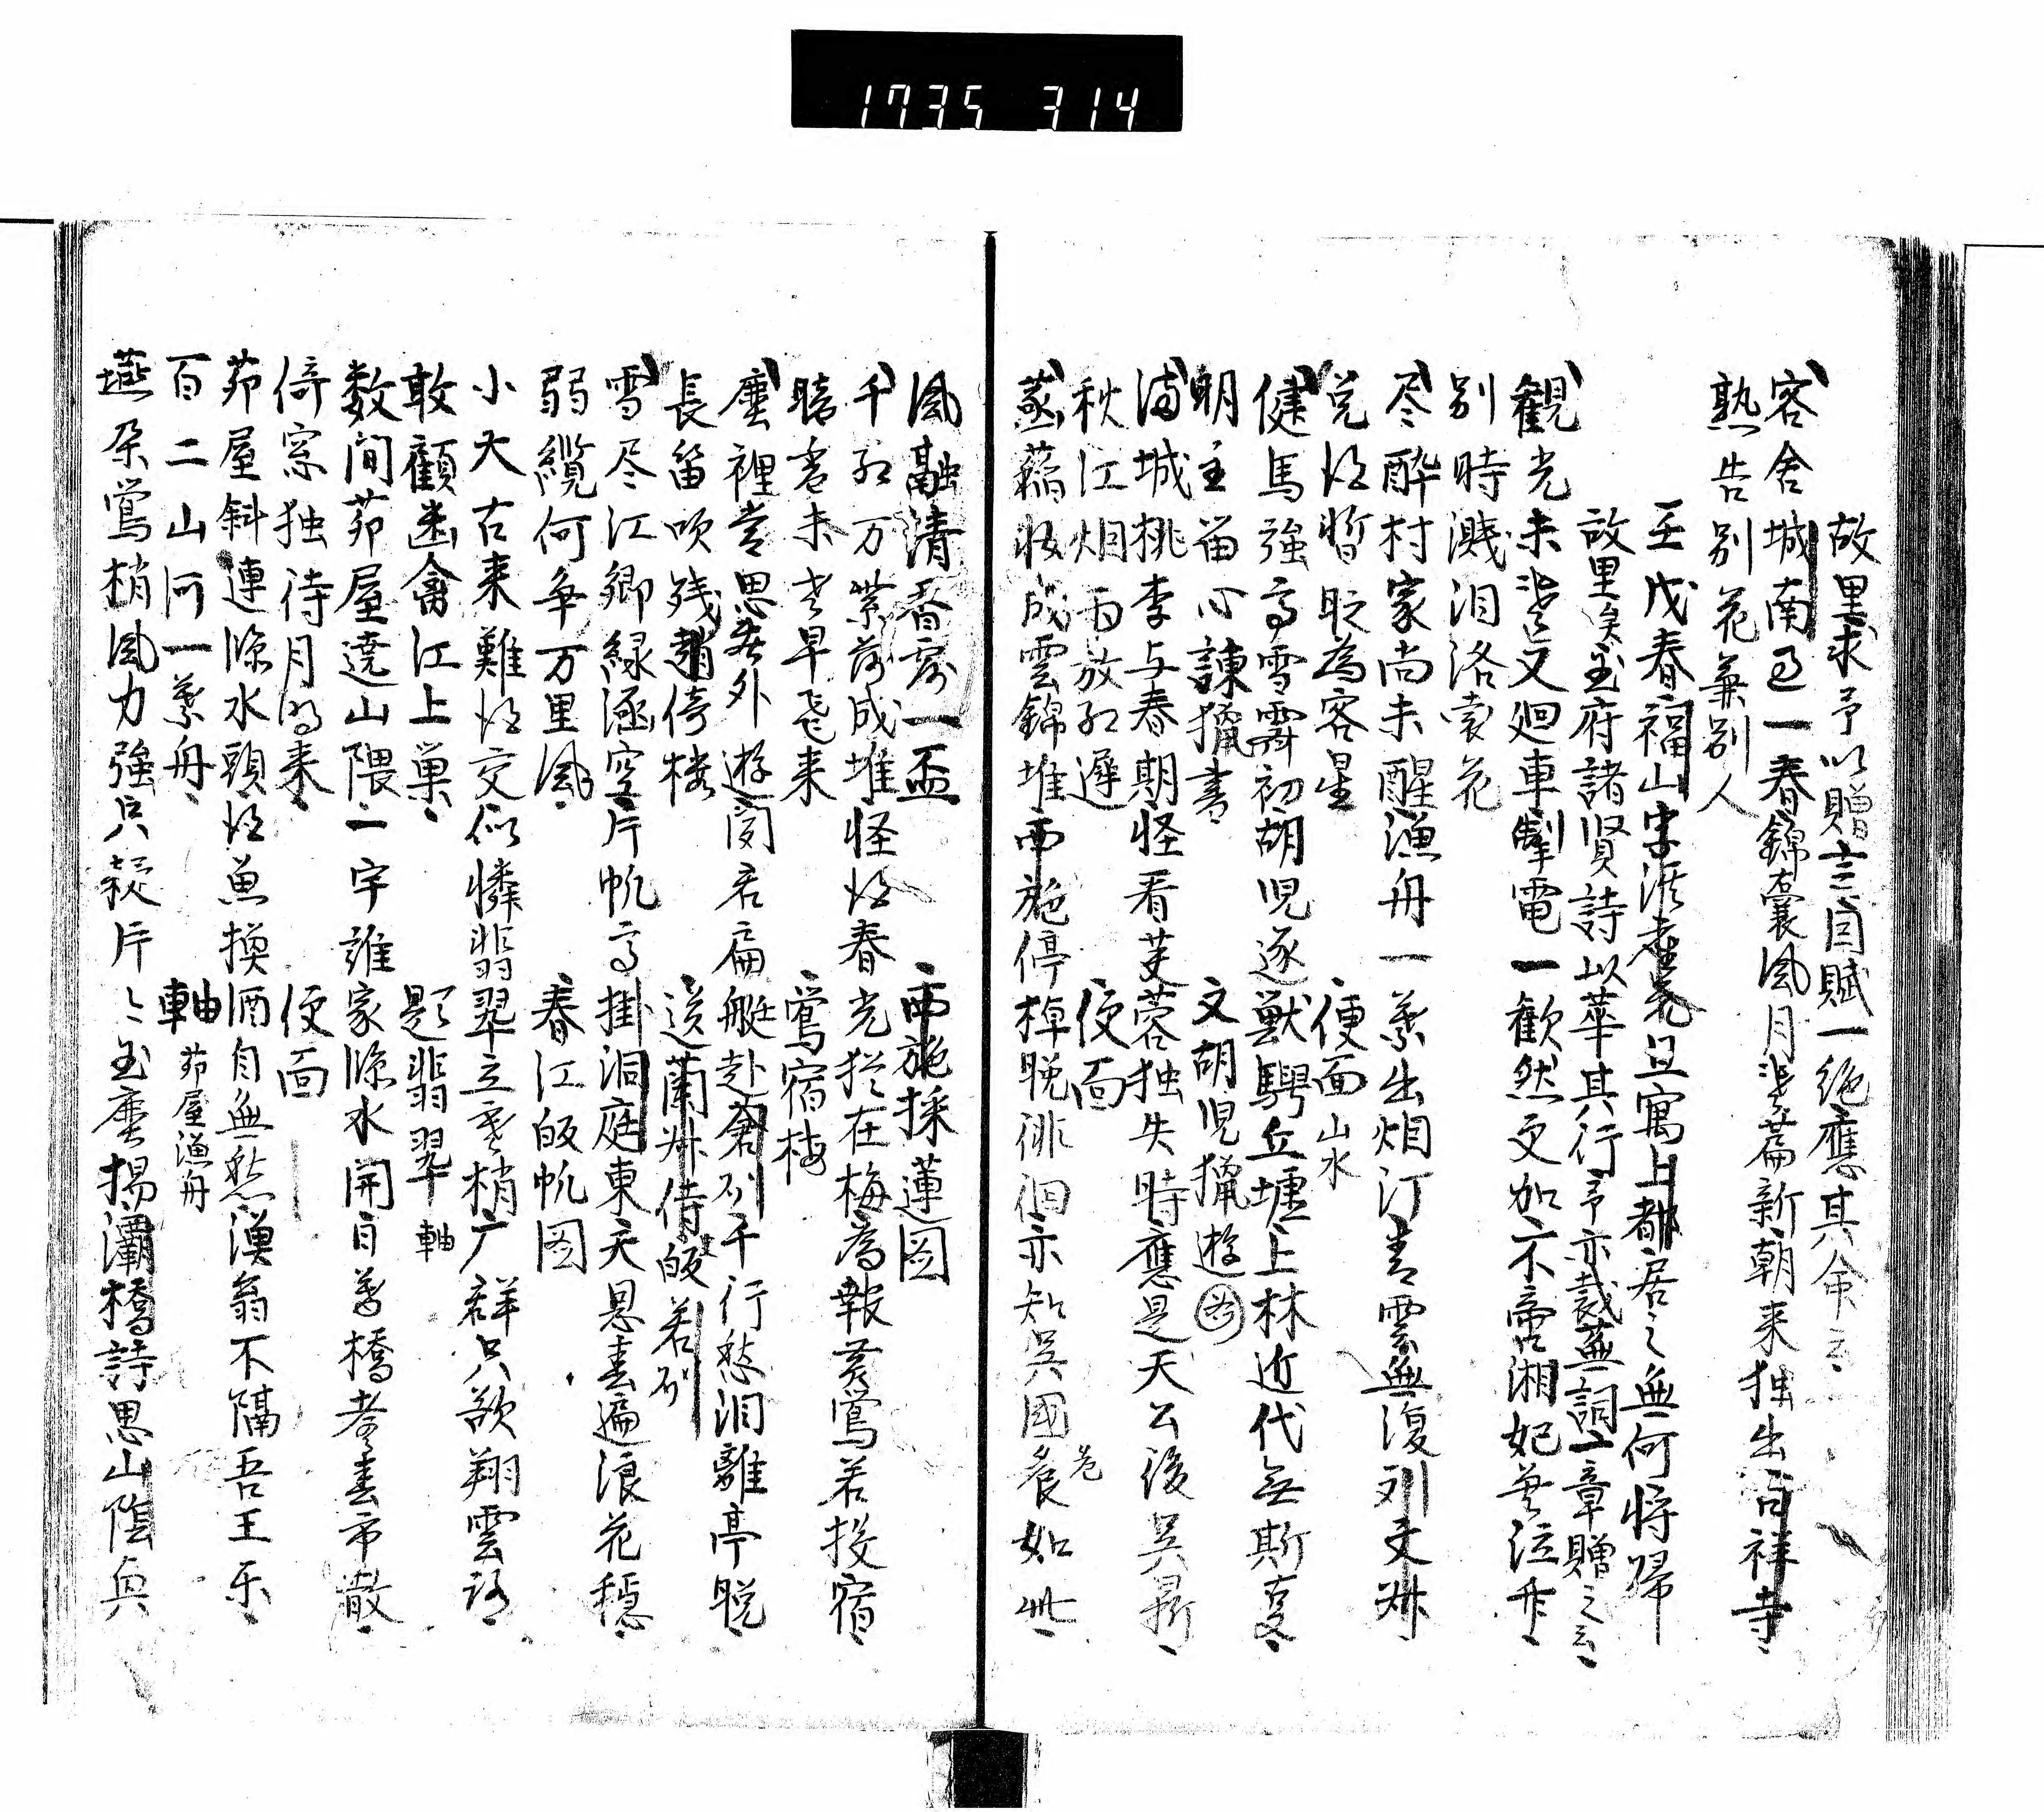 1735 314
故里求予以贈言因賦一絶應其命云
客舎城南已一春錦囊風月幾篇新朝来独出吉祥寺
熟告別花兼別人
壬戌春福山字派老衲且寓上都居之無何将帰
故里矣玉府諸賢詩以華其行予亦裁蕪詞一章贈之云
観光未幾又廻車掣電一歓然又加不啻湘妃并泣舟
別時濺泪洛裳花
尽酔村家尚未醒漁舟一葉出烟汀青雲無復列文姝
覚得暫眠為客星 便面山水
健馬強弓雪霽初胡児逐獣騁丘墟上林近代無斯事
明主留心諫猟書 文胡児猟遊図
満城桃李与春期怪看芙蓉独失時應是天公後呉晷
秋江烟雨放紅遅 便面
蒸蘊粧成雲錦堆西施停棹晩徘徊亦知呉國危如此
風融清香露一盃 西施採蓮図
千紅万紫落成堆怪得春光猶在梅為報黄鶯若投宿
暗香未老早飛来 鶯宿梅
塵裡営思塵外遊聞君扁艇赴蒼州千行愁泪離亭晩
長笛吹残趙倚楼 送蘭叔侍皈若州
雪尽江郷緑涵空片帆高掛洞庭東天恩春遍浪花穏
弱纜何争万里風 春江皈帆図
小大古来難得交似憐翡翠立寒梢广群只欲翔雲路
敢顧幽禽江上巣 題翡翠軸
数間茆屋遶山隈一宇誰家際水開日暮橋辺春市散
倚窓独待月明来 便面
茆屋斜連際水頭得魚換酒自無愁漢翁不隔吾王楽
百二山河一葉舟 軸茆屋漁舟
燕尕鶯梢風力強只疑片々玉塵揚灞橋詩思山陰興